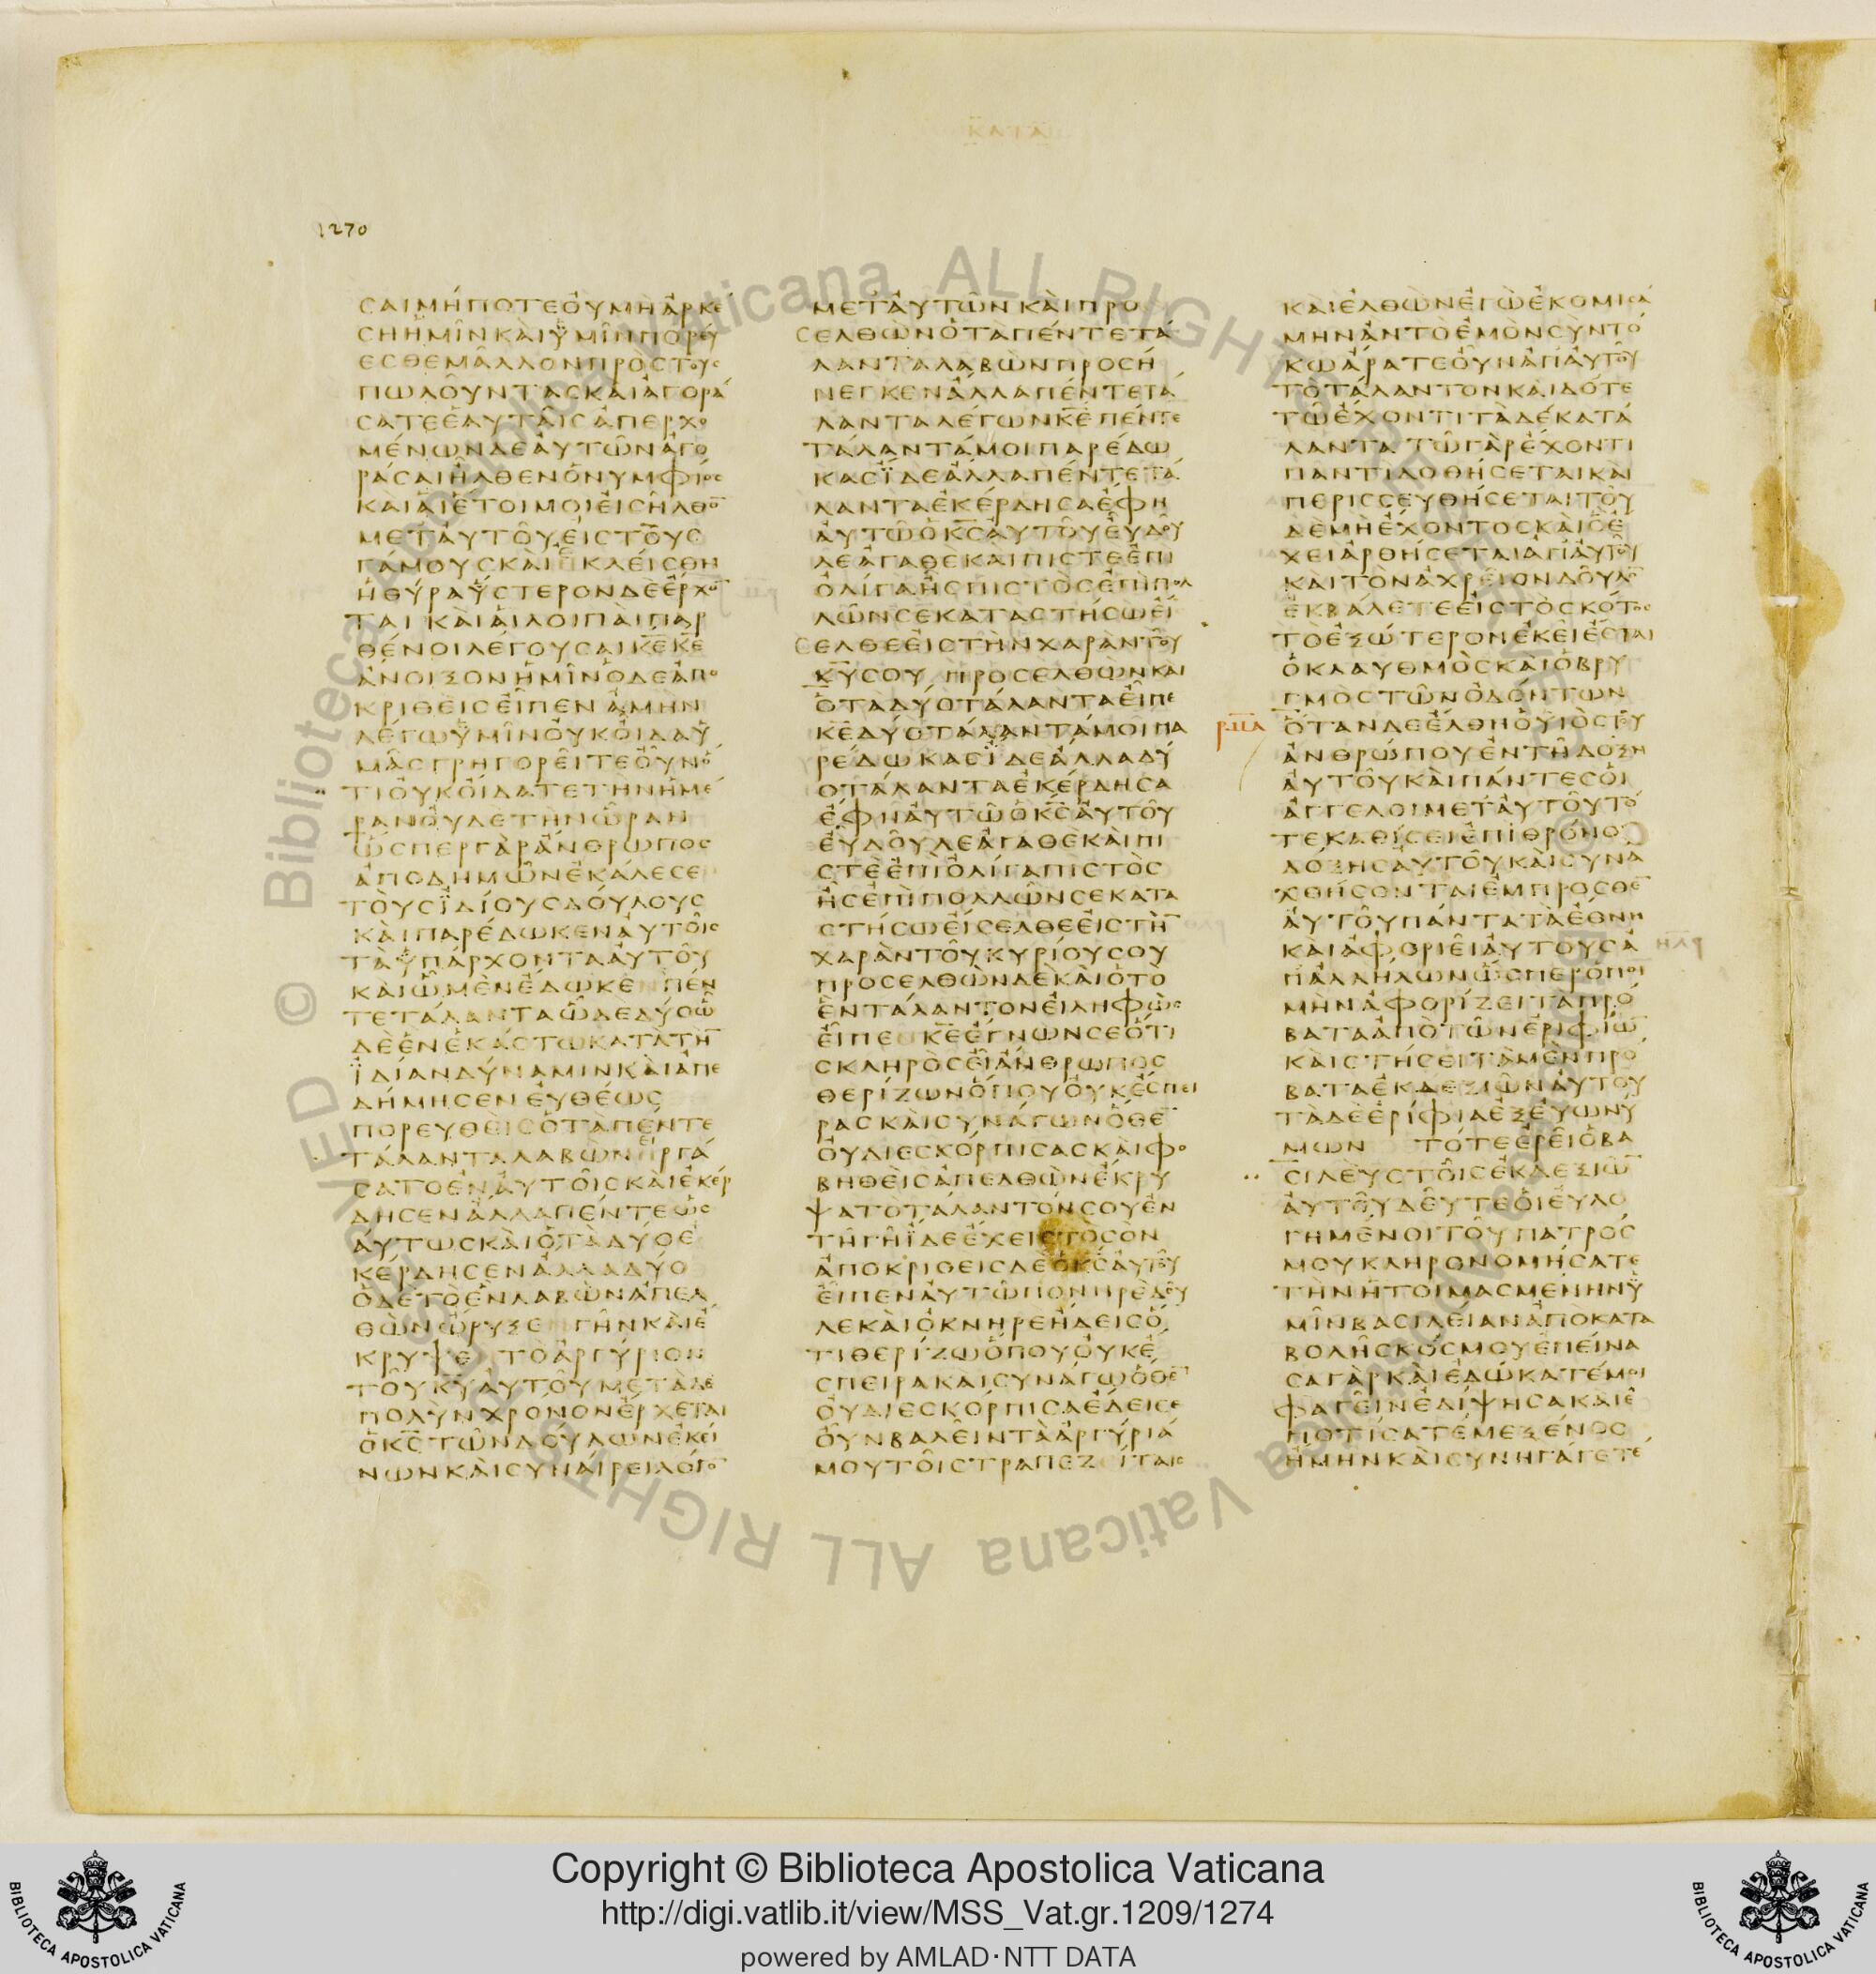 ΚΑΤΑ
1270
ϹΑΙΜΗΠΟΤΕΟΥΜΗΑΡΚΕ
ϹΗΗΜΙΝΚΑΙΥΜΙΝΠΟΡΕΥ
ΕϹΘΕΜΑΛΛΟΝΠΡΟϹΤΟΥϹ
ΠΩΛΟΥΝΤΑϹΚΑΙΑΓΟΡΑ
ϹΑΤΕΕΑΥΤΑΙϹΑΠΕΡΧΟ
ΜΕΝΩΝΔΕΑΥΤΩΝΑΓΟ
ΡΑϹΑΙΗΛΘΕΝΟΝΥΜΦΙΟϹ
ΚΑΙΑΙΕΤΟΙΜΟΙΕΙϹΗΛΘΟ̅
ΜΕΤΑΥΤΟΥΕΙϹΤΟΥϹ
ΓΑΜΟΥϹΚΑΙΕΚΛΕΙϹΘΗ
ΗΘΥΡΑΥϹΤΕΡΟΝΔΕΕΡΧΟ̅
ΤΑΙ ΚΑΙΑΙΛΟΙΠΑΙΠΑΡ
ΘΕΝΟΙΛΕΓΟΥϹΑΙΚ̅Ε̅Κ̅Ε̅
ΑΝΟΙΞΟΝΗΜΙΝΟΔΕΑΠΟ
ΚΡΙΘΕΙϹΕΙΠΕΝΑΜΗΝ
ΛΕΓΩΥΜΙΝΟΥΚΟΙΔΑΥ
ΜΑϹΓΡΗΓΟΡΕΙΤΕΟΥΝΟ
ΤΙΟΥΚΟΙΔΑΤΕΤΗΝΗΜΕ
ΡΑΝΟΥΔΕΤΗΝΩΡΑΝ
ΩϹΠΕΡΓΑΡΑΝΘΡΩΠΟϹ
ΑΠΟΔΗΜΩΝΕΚΑΛΕϹΕ
ΤΟΥϹΙΔΙΟΥϹΔΟΥΛΟΥϹ
ΚΑΙΠΑΡΕΔΩΚΕΝΑΥΤΟΙϹ
ΤΑΥΠΑΡΧΟΝΤΑΑΥΤΟΥ
ΚΑΙΩΜΕΝΕΔΩΚΕΝΠΕΝ
ΤΕΤΑΛΑΝΤΑΩΔΕΔΥΟΩ
ΔΕΕΝΕΚΑϹΤΩΚΑΤΑΤΗ̅
ΙΔΙΑΝΔΥΝΑΜΙΝΚΑΙΑΠΕ
ΔΗΜΗϹΕΝΕΥΘΕΩϹ
ΠΟΡΕΥΘΕΙϹΟΤΑΠΕΝΤΕ
ΤΑΛΑΝΤΑΛΑΒΩΝΗΡΓΑ
ϹΑΤΟΕΝΑΥΤΟΙϹΚΑΙΕΚΕΡ
ΔΗϹΕΝΑΛΛΑΠΕΝΤΕΩϹ
ΑΥΤΩϹΚΑΙΟΤΑΔΥΟΕ
ΚΕΡΔΗϹΕΝΑΛΛΑΔΥΟ
ΟΔΕΤΟΕΝΛΑΒΩΝΑΠΕΛ
ΘΩΝΩΡΥΞΕΝΓΗΝΚΑΙΕ
ΚΡΥΨΕΝΤΟΑΡΓΥΡΙΟΝ
ΤΟΥΚ̅Υ̅ΑΥΤΟΥΜΕΤΑΔΕ
ΠΟΛΥΝΧΡΟΝΟΝΕΡΧΕΤΑΙ
ΟΚ̅Ϲ̅ΤΩΝΔΟΥΛΩΝΕΚΕΙ
ΝΩΝΚΑΙϹΥΝΑΙΡΕΙΛΟΓΟ̅
ΜΕΤΑΥΤΩΝΚΑΙΠΡΟϹ
ϹΕΛΘΩΝΟΤΑΠΕΝΤΕΤΑ
ΛΑΝΤΑΛΑΒΩΝΠΡΟϹΗ
ΝΕΓΚΕΝΑΛΛΑΠΕΝΤΕΤΑ
ΛΑΝΤΑΛΕΓΩΝΚ̅Ε̅ΠΕΝΤΕ
ΤΑΛΑΝΤΑΜΟΙΠΑΡΕΔΩ
ΚΑϹΙΔΕΑΛΛΑΠΕΝΤΕΤΑ
ΛΑΝΤΑΕΚΕΡΔΗϹΑΕΦΗ
ΑΥΤΩΟΚ̅Ϲ̅ΑΥΤΟΥΕΥΔΟΥ
ΛΕΑΓΑΘΕΚΑΙΠΙϹΤΕΕΠΙ
ΟΛΙΓΑΗϹΠΙϹΤΟϹΕΠΙΠΟΛ
ΛΩΝϹΕΚΑΤΑϹΤΗϹΩΕΙ
ϹΕΛΘΕΕΙϹΤΗΝΧΑΡΑΝΤΟΥ
Κ̅Υ̅ϹΟΥ ΠΡΟϹΕΛΘΩΝΚΑΙ
ΟΤΑΔΥΟΤΑΛΑΝΤΑΕΙΠΕ
Κ̅Ε̅ΔΥΟΤΑΛΑΝΤΑΜΟΙΠΑ
ΡΕΔΩΚΑϹΙΔΕΑΛΛΑΔΥ
ΟΤΑΛΑΝΤΑΕΚΕΡΔΗϹΑ
ΕΦΗΑΥΤΩΟΚ̅Ϲ̅ΑΥΤΟΥ
ΕΥΔΟΥΛΕΑΓΑΘΕΚΑΙΠΙ
ϹΤΕΕΠΙΟΛΙΓΑΠΙϹΤΟϹ
ΗϹΕΠΙΠΟΛΛΩΝϹΕΚΑΤΑ
ϹΤΗϹΩΕΙϹΕΛΘΕΕΙϹΤΗ̅
ΧΑΡΑΝΤΟΥΚΥΡΙΟΥϹΟΥ
ΠΡΟϹΕΛΘΩΝΔΕΚΑΙΟΤΟ
ΕΝΤΑΛΑΝΤΟΝΕΙΛΗΦΩϹ
ΕΙΠΕΝΚ̅Ε̅ΕΓΝΩΝϹΕΟΤΙ
ϹΚΛΗΡΟϹΕΙΑΝΘΡΩΠΟϹ
ΘΕΡΙΖΩΝΟΠΟΥΟΥΚΕϹΠΕΙ
ΡΑϹΚΑΙϹΥΝΑΓΩΝΟΘΕ̅
ΟΥΔΙΕϹΚΟΡΠΙϹΑϹΚΑΙΦΟ
ΒΗΘΕΙϹΑΠΕΛΘΩΝΕΚΡΥ
ΨΑΤΟΤΑΛΑΝΤΟΝϹΟΥΕΝ
ΤΗΓΗΙΔΕΕΧΕΙϹΤΟϹΟΝ
ΑΠΟΚΡΙΘΕΙϹΔΕΟΚ̅Ϲ̅ΑΥΤΟΥ
ΕΙΠΕΝΑΥΤΩΠΟΝΗΡΕΔΟΥ
ΛΕΚΑΙΟΚΝΗΡΕΗΔΕΙϹΟ
ΤΙΘΕΡΙΖΩΟΠΟΥΟΥΚΕ
ϹΠΕΙΡΑΚΑΙϹΥΝΑΓΩΟΘΕ̅
ΟΥΔΙΕϹΚΟΡΠΙϹΑΕΔΕΙϹΕ
ΟΥΝΒΑΛΕΙΝΤΑΑΡΓΥΡΙΑ
ΜΟΥΤΟΙϹΤΡΑΠΕΖΕΙΤΑΙϹ
ΚΑΙΕΛΘΩΝΕΓΩΕΚΟΜΙϹΑ
ΜΗΝΑΝΤΟΕΜΟΝϹΥΝΤΟ
ΚΩΑΡΑΤΕΟΥΝΑΠΑΥΤΟΥ
ΤΟΤΑΛΑΝΤΟΝΚΑΙΔΟΤΕ
ΤΩΕΧΟΝΤΙΤΑΔΕΚΑΤΑ
ΛΑΝΤΑΤΩΓΑΡΕΧΟΝΤΙ
ΠΑΝΤΙΔΟΘΗϹΕΤΑΙΚΑΙ
ΠΕΡΙϹϹΕΥΘΗϹΕΤΑΙΤΟΥ
ΔΕΜΗΕΧΟΝΤΟϹΚΑΙΟΕ
ΧΕΙΑΡΘΗϹΕΤΑΙΑΠΑΥΤΟΥ
ΚΑΙΤΟΝΑΧΡΕΙΟΝΔΟΥΛΟ̅
ΕΚΒΑΛΕΤΕΕΙϹΤΟϹΚΟΤΟϹ
ΤΟΕΞΩΤΕΡΟΝΕΚΕΙΕϹΤΑΙ
ΟΚΛΑΥΘΜΟϹΚΑΙΟΒΡΥ
ΓΜΟϹΤΩΝΟΔΟΝΤΩΝ
ρμα ΟΤΑΝΔΕΕΛΘΗΟΥΙΟϹΤΟΥ
ΑΝΘΡΩΠΟΥΕΝΤΗΔΟΞΗ
ΑΥΤΟΥΚΑΙΠΑΝΤΕϹΟΙ
ΑΓΓΕΛΟΙΜΕΤΑΥΤΟΥΤΟ
ΤΕΚΑΘΙϹΕΙΕΠΙΘΡΟΝΟΥ
ΔΟΞΗϹΑΥΤΟΥΚΑΙϹΥΝΑ
ΧΘΗϹΟΝΤΑΙΕΜΠΡΟϹΘΕ̅
ΑΥΤΟΥΠΑΝΤΑΤΑΕΘΝΗ
ΚΑΙΑΦΟΡΙΕΙΑΥΤΟΥϹΑ
ΠΑΛΛΗΛΩΝΩϹΠΕΡΟΠΟΙ
ΜΗΝΑΦΟΡΙΖΕΙΤΑΠΡΟ
ΒΑΤΑΑΠΟΤΩΝΕΡΙΦΙΩ̅
ΚΑΙϹΤΗϹΕΙΤΑΜΕΝΠΡΟ
ΒΑΤΑΕΚΔΕΞΙΩΝΑΥΤΟΥ
ΤΑΔΕΕΡΙΦΙΑΕΞΕΥΩΝΥ
ΜΩΝ ΤΟΤΕΕΡΕΙΟΒΑ
ϹΙΛΕΥϹΤΟΙϹΕΚΔΕΞΙΩ̅
ΑΥΤΟΥΔΕΥΤΕΟΙΕΥΛΟ
ΓΗΜΕΝΟΙΤΟΥΠΑΤΡΟϹ
ΜΟΥΚΛΗΡΟΝΟΜΗϹΑΤΕ
ΤΗΝΗΤΟΙΜΑϹΜΕΝΗΝΥ
ΜΙΝΒΑϹΙΛΕΙΑΝΑΠΟΚΑΤΑ
ΒΟΛΗϹΚΟϹΜΟΥΕΠΕΙΝΑ
ϹΑΓΑΡΚΑΙΕΔΩΚΑΤΕΜΟΙ
ΦΑΓΕΙΝΕΔΙΨΗϹΑΚΑΙΕ
ΠΟΤΙϹΑΤΕΜΕΞΕΝΟϹ
ΗΜΗΝΚΑΙϹΥΝΗΓΑΓΕΤΕ
© Biblioteca Apostolica Vaticana ALL RIGHTS RESERVED
Copyright © Biblioteca Apostolica Vaticana
http://digi.vatlib.it/view/MSS_Vat.gr.1209/1274
powered by AMLAD·NTT DATA
BIBLIOTECA APOSTOLICA VATICANA
BIBLIOTECA APOSTOLICA VATICANA